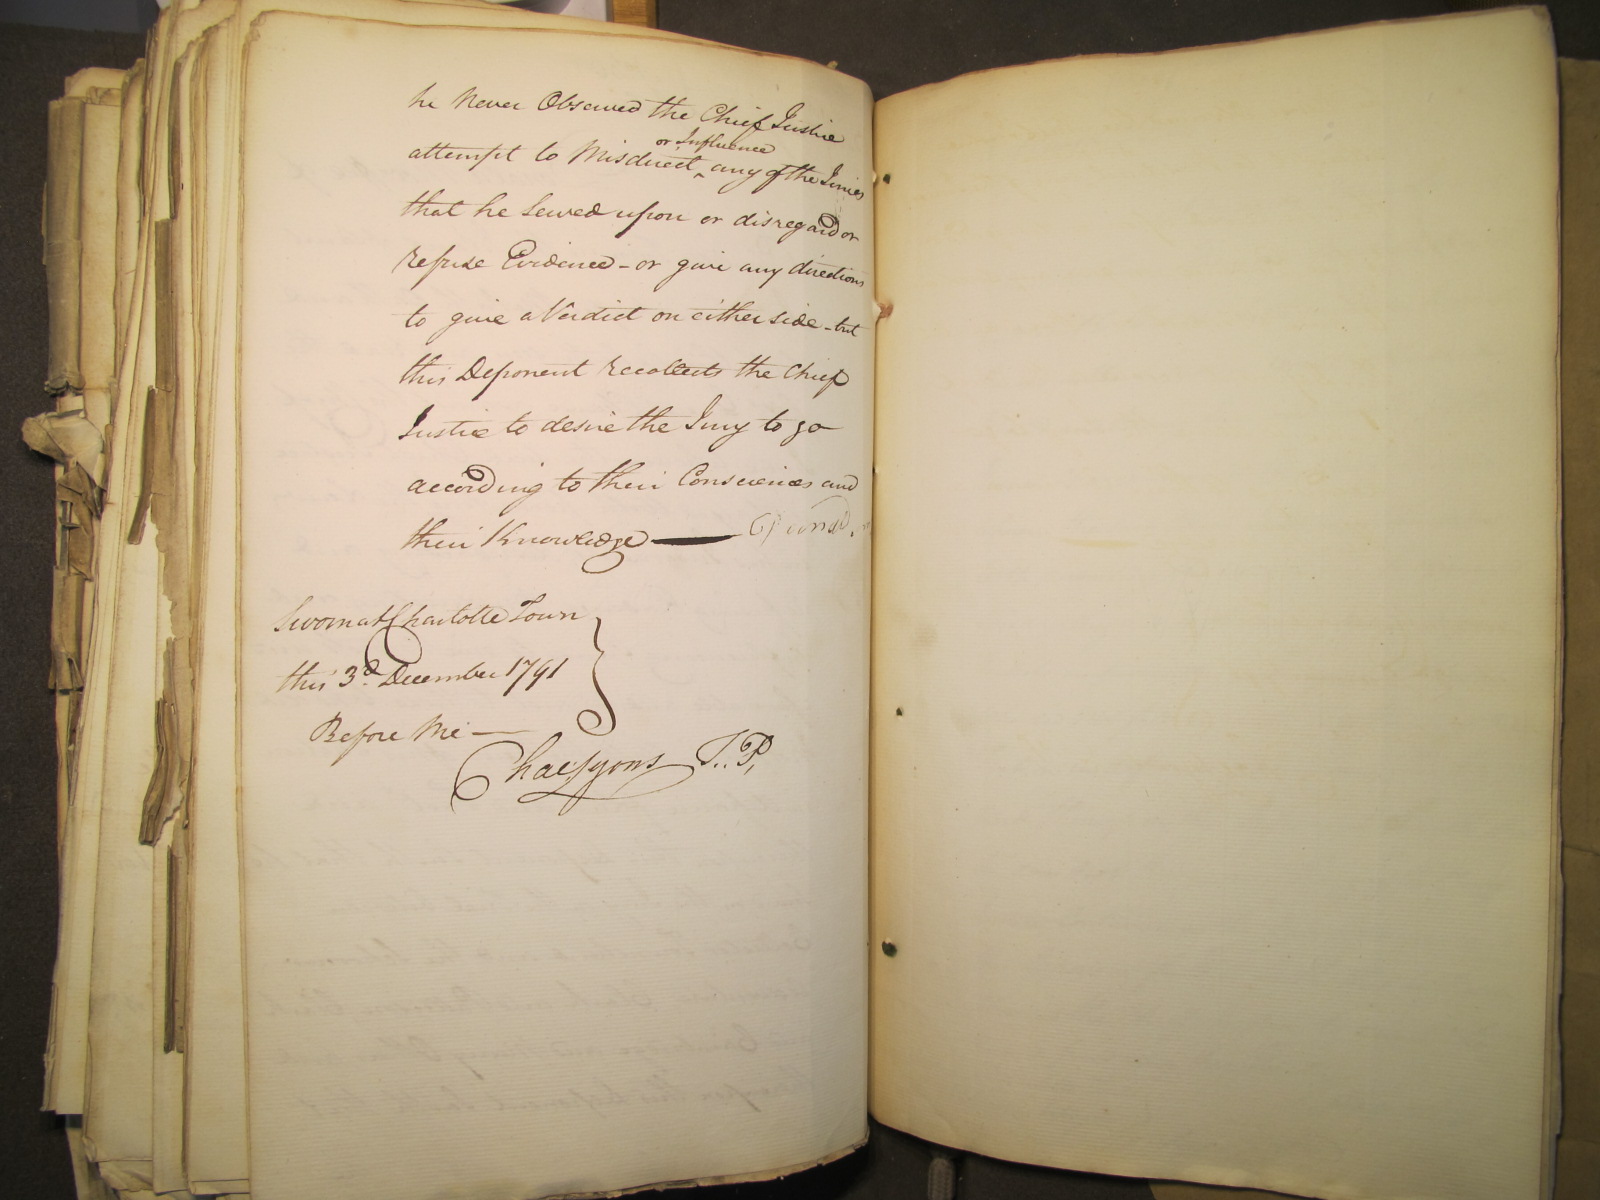 he Never Observed the Chief Justice
or Influence
attempt to Misdirect ‸ any of the Juries
that he served upon or disregard or
refuse Evidence - or give any directions
to give a Verdict on either side - but
this Deponent recollects the Chief
Justice to desire the Jury to go
according to their Consciences and
their Knowledge —
Sworn at Charlotte Town
this 3d. December 1791
Before Me —
Chas Lyons J.. P,